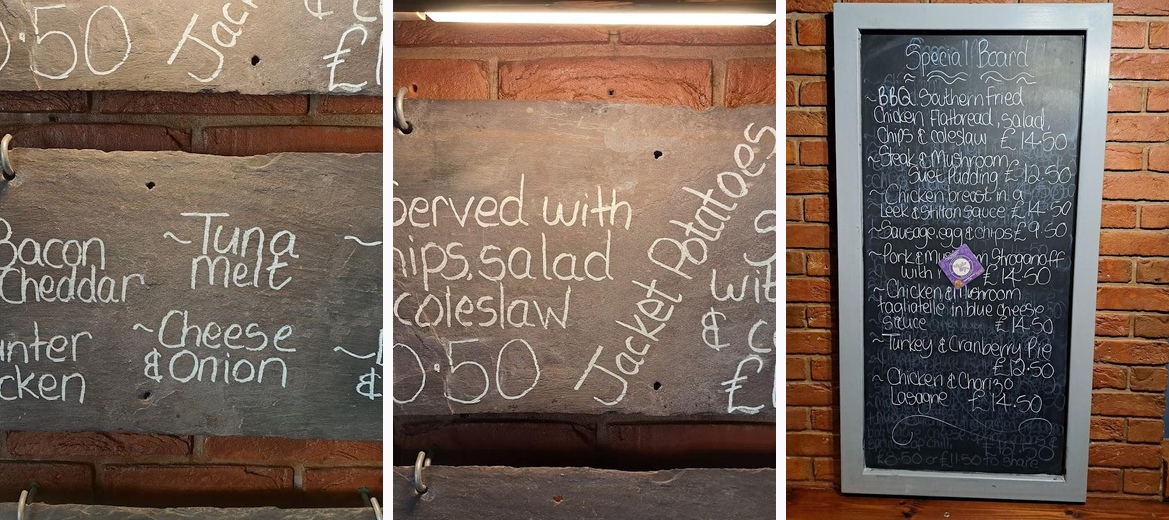 0.50
Jac
& c
£1
Bacon
Cheddar
~Tuna
melt
~
unter
cken
~Cheese
&Onion
~
&
Served with
hips, salad
coleslaw
0.50
Jacket Potatoes
S
wit
& c
£1
Special Board
~BBQ Southern Fried
Chicken Flatbread, salad,
Chips & coleslaw £14.50
~Steak & Mushroom
Suet Pudding £12.50
~Chicken breast in a
Leek & Stilton sauce £14.50
~Sausage, egg & chips £9.50
~Pork & Stroganoff
with £14.50
~Chicken & Mushroom
tagliatelle in blue cheese
sauce £14.50
~Turkey & Cranberry Pie
£12.50
~Chicken & Chorizo
Lasagne £14.50